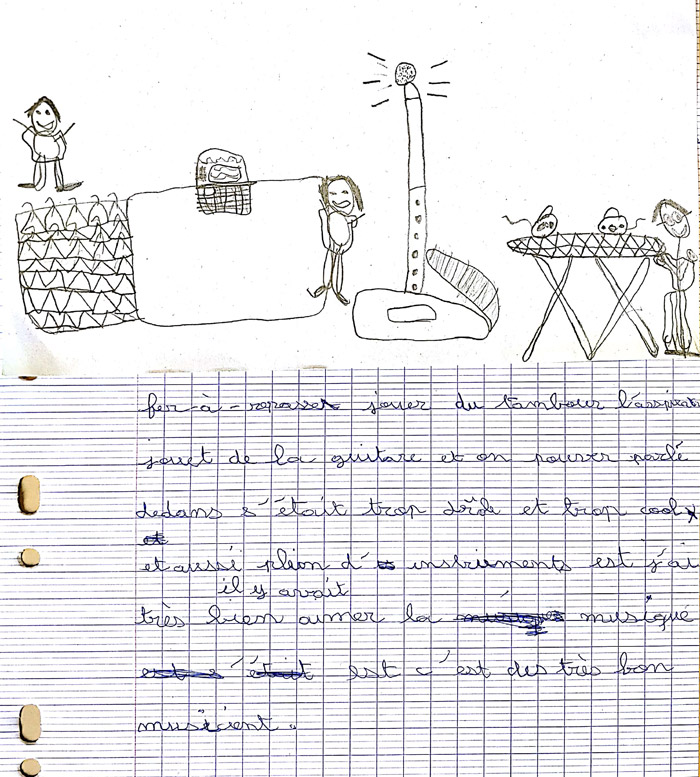 fer-à-repasser jouer du tambour l'aspirat
jouet de la guitare et on pouver parlé
dedans s'était trop drôle et trop cool
et
et aussi pleion d' instruments est j'ai
il y avait
très bien aimer la musique
est s'était est c'est des très bon
musicient.